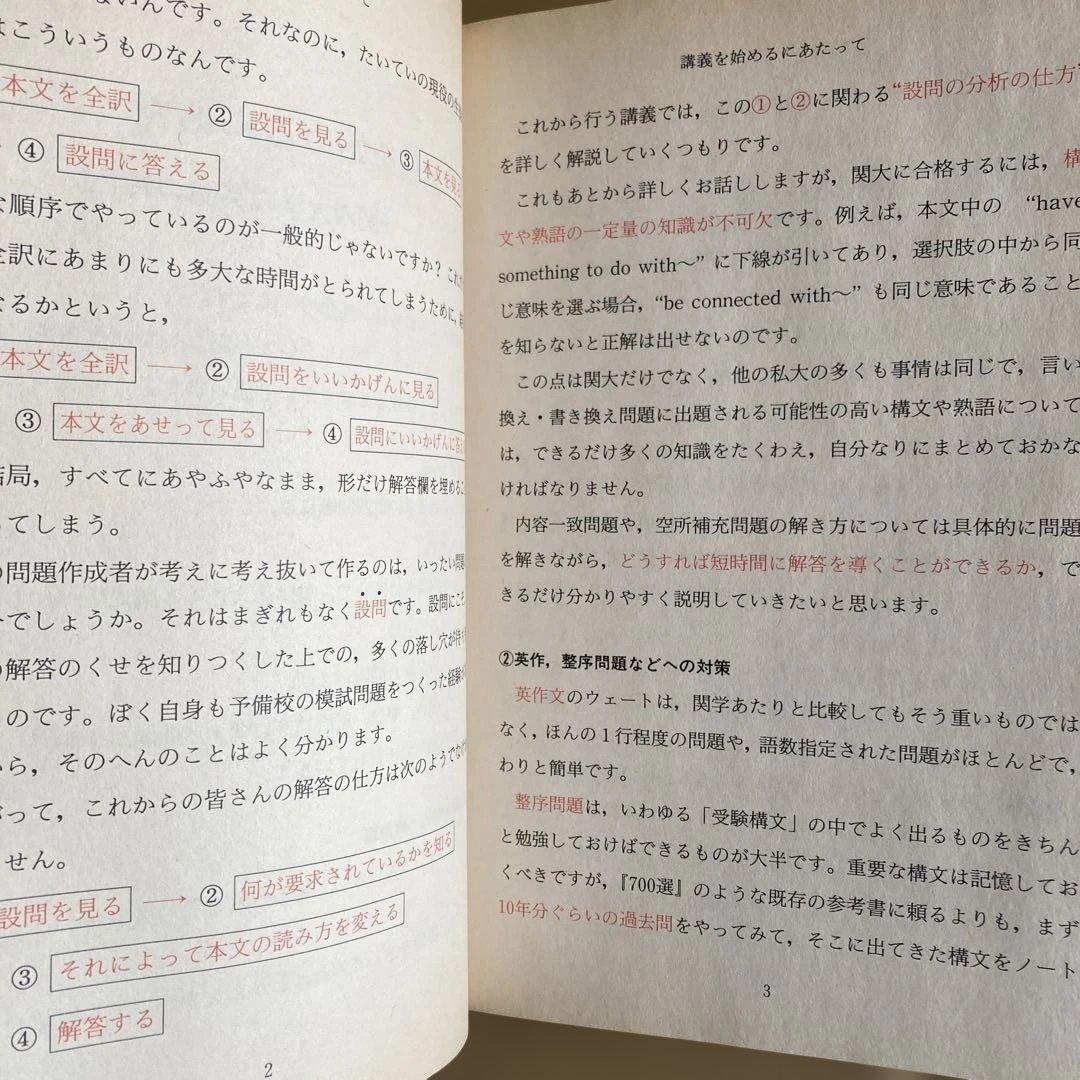 ないんです。それなのに，たいていの現役の
はこういうものなんです。
本文を全訳 → ② 設問を見る → ③ 本文を見
④ 設問に答える
な順序でやっているのが一般的じゃないですか？
全訳にあまりにも多大な時間がとられてしまうために，
なるかというと，
本文を全訳 → ② 設問をいいかげんに見る
③ 本文をあせって見る → ④ 設問にいいかげんに答
結局，すべてにあやふやなまま，形だけ解答欄を埋める
ってしまう。
の問題作成者が考えに考え抜いて作るのは，いったい問
でしょうか。それはまぎれもなく設問です。設問にこそ
の解答のくせを知りつくした上での，多くの落し穴が待
のです。ぼく自身も予備校の模試問題をつくった経験が
から，そのへんのことはよく分かります。
がって，これからの皆さんの解答の仕方は次のようでなけ
せん。
設問を見る → ② 何が要求されているかを知る
③ それによって本文の読み方を変える
④ 解答する
2
講義を始めるにあたって
これから行う講義では，この①と②に関わる“設問の分析の仕方”
を詳しく解説していくつもりです。
これもあとから詳しくお話ししますが，関大に合格するには，構
文や熟語の一定量の知識が不可欠です。例えば，本文中の “have
something to do with～” に下線が引いてあり，選択肢の中から同
じ意味を選ぶ場合，“be connected with～” も同じ意味であること
を知らないと正解は出せないのです。
この点は関大だけでなく，他の私大の多くも事情は同じで，言い
換え・書き換え問題に出題される可能性の高い構文や熟語について
は，できるだけ多くの知識をたくわえ，自分なりにまとめておかな
ければなりません。
内容一致問題や，空所補充問題の解き方については具体的に問題
を解きながら，どうすれば短時間に解答を導くことができるか，で
きるだけ分かりやすく説明していきたいと思います。
②英作，整序問題などへの対策
英作文のウェートは，関学あたりと比較してもそう重いものでは
なく，ほんの１行程度の問題や，語数指定された問題がほとんどで，
わりと簡単です。
整序問題は，いわゆる「受験構文」の中でよく出るものをきちん
と勉強しておけばできるものが大半です。重要な構文は記憶してお
くべきですが，『700選』のような既存の参考書に頼るよりも，まず
10年分ぐらいの過去問をやってみて，そこに出てきた構文をノート
3